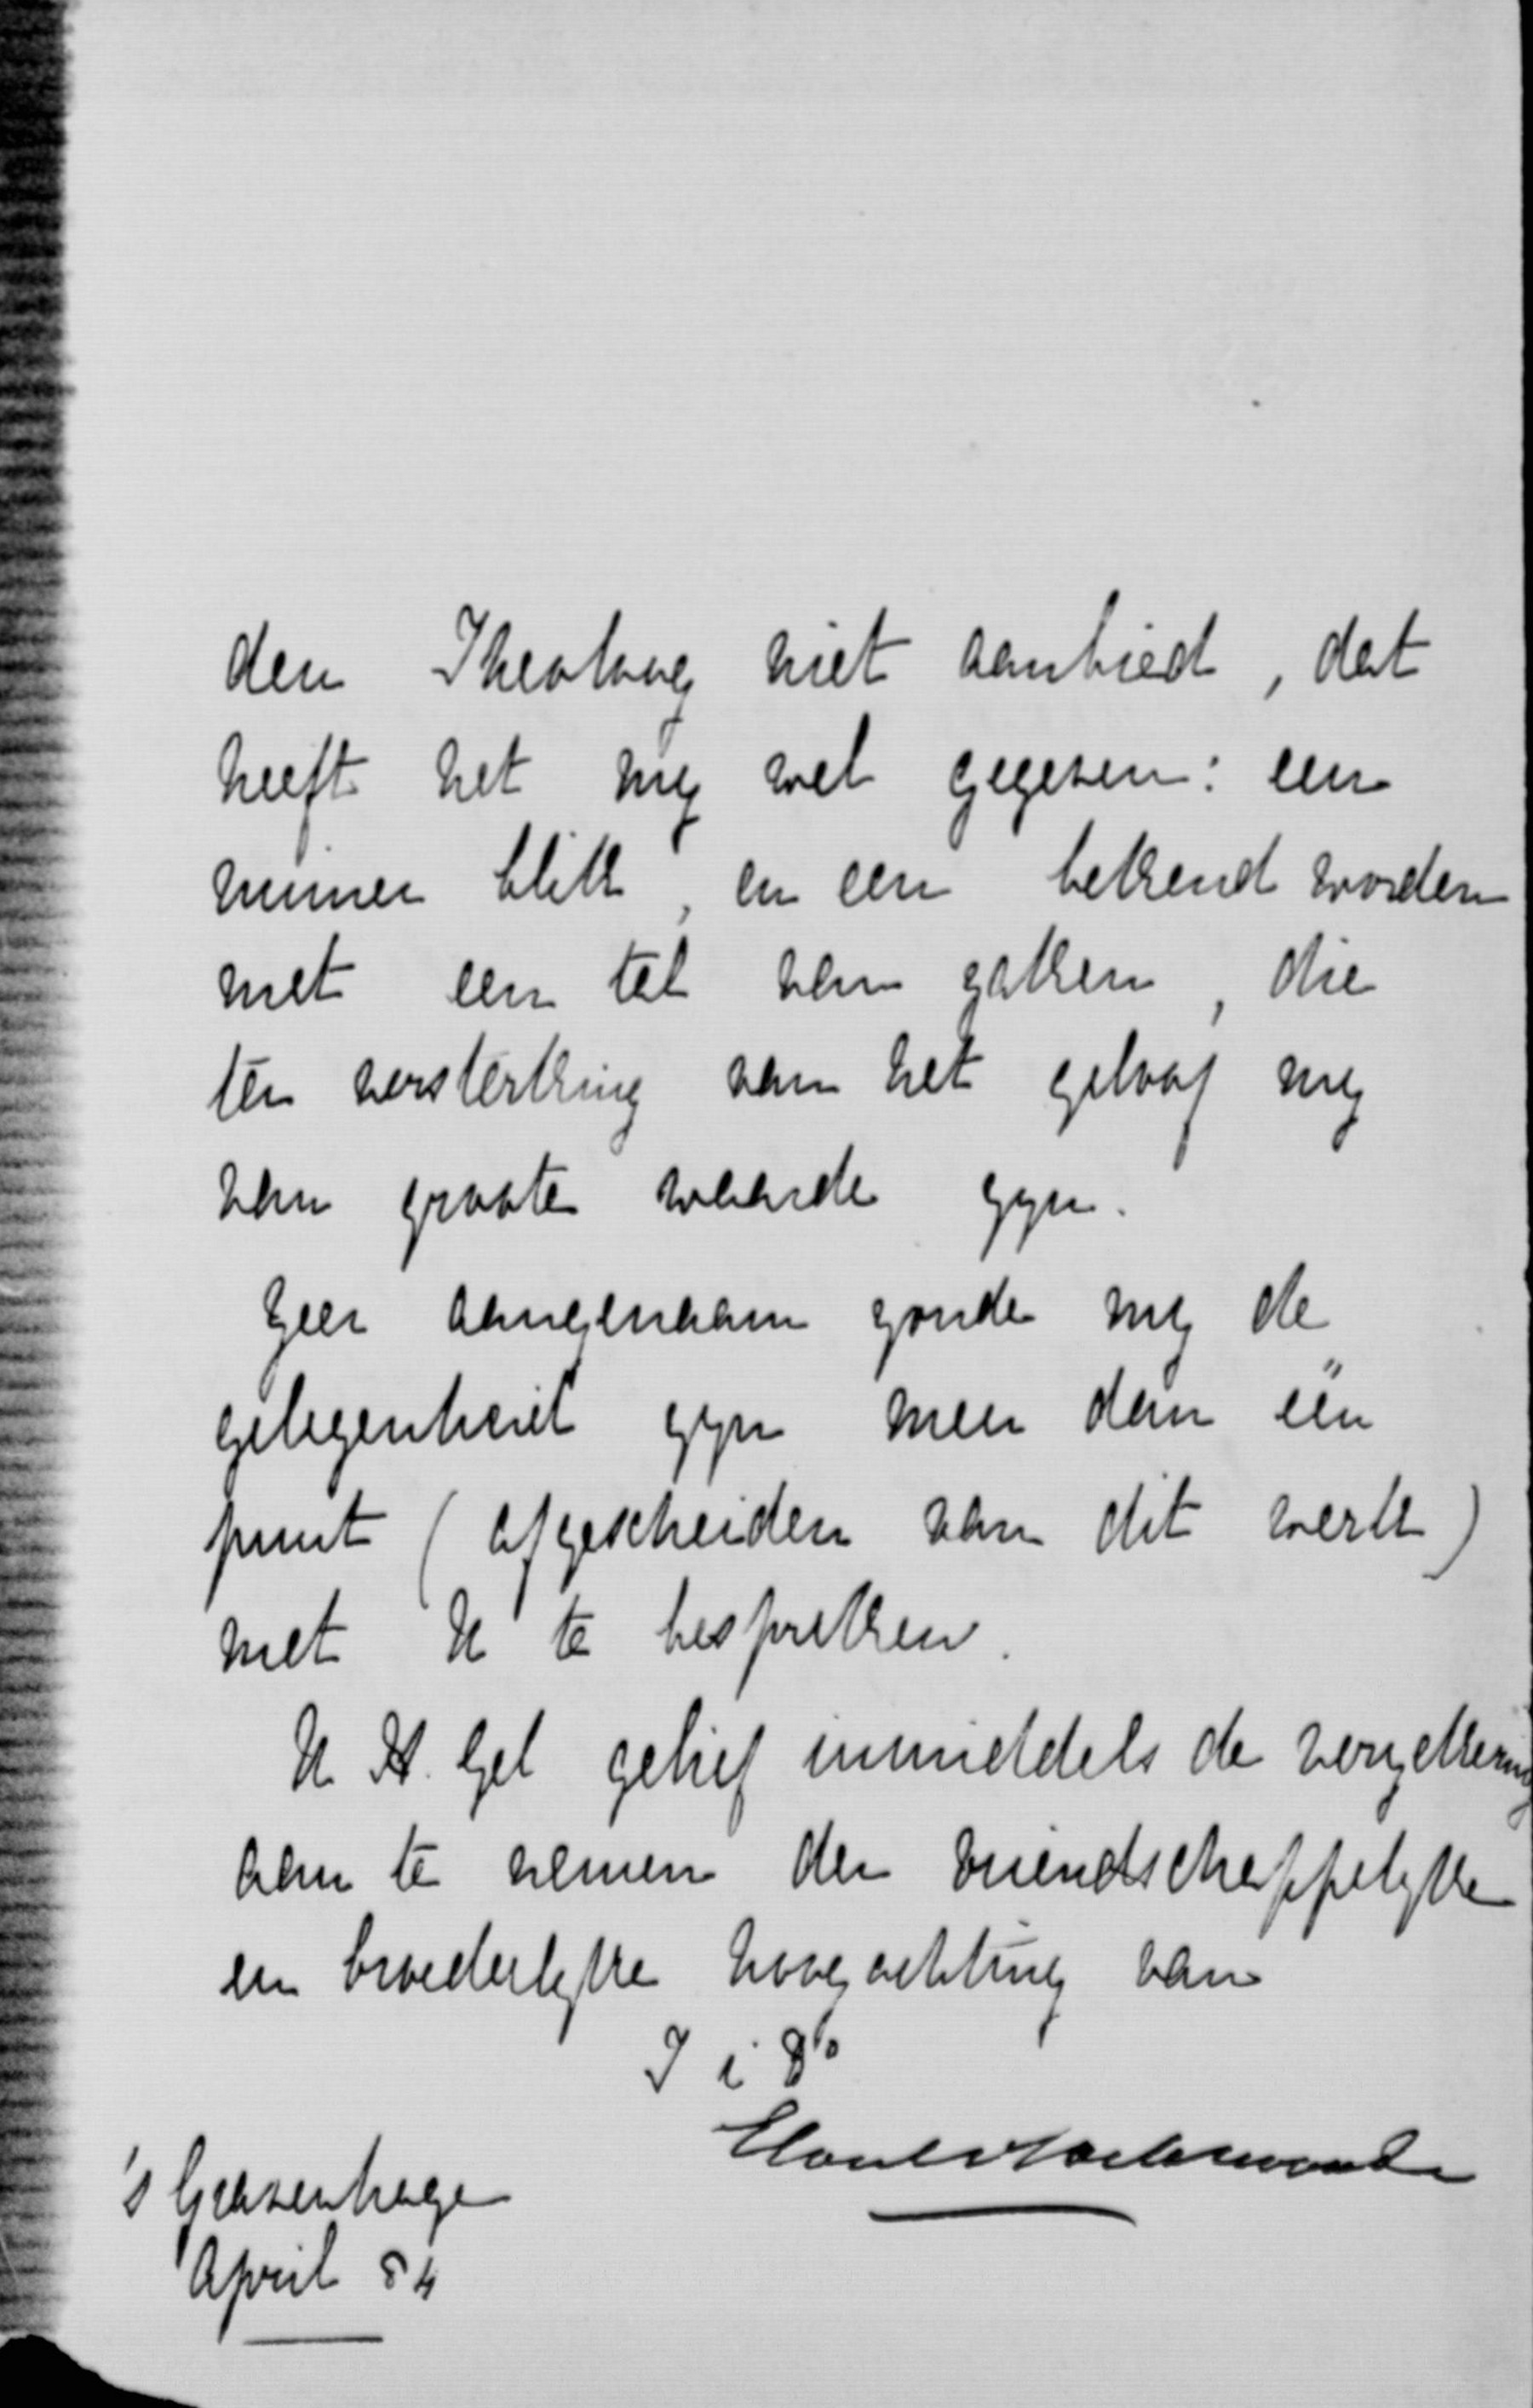 den Theoloog niet aanbied, dat
heeft het my wel gegeven: een
ruimer blik, en een bekend worden
met een tal van zaken, die
ter versterking van het geloof my
van groote waarde zyn.
Zeer aangenaam zoude my de
gelegenheid zyn meer dan één
punt (afgescheiden van dit werk)
met U te bespreken.
U H. Gel gelief inmiddels de verzekering
aan te nemen der vriendschappelyke
en broederlyke hoogachting van
T i Xo
Elout v Soeterwoude
's Gravenhage
April 84